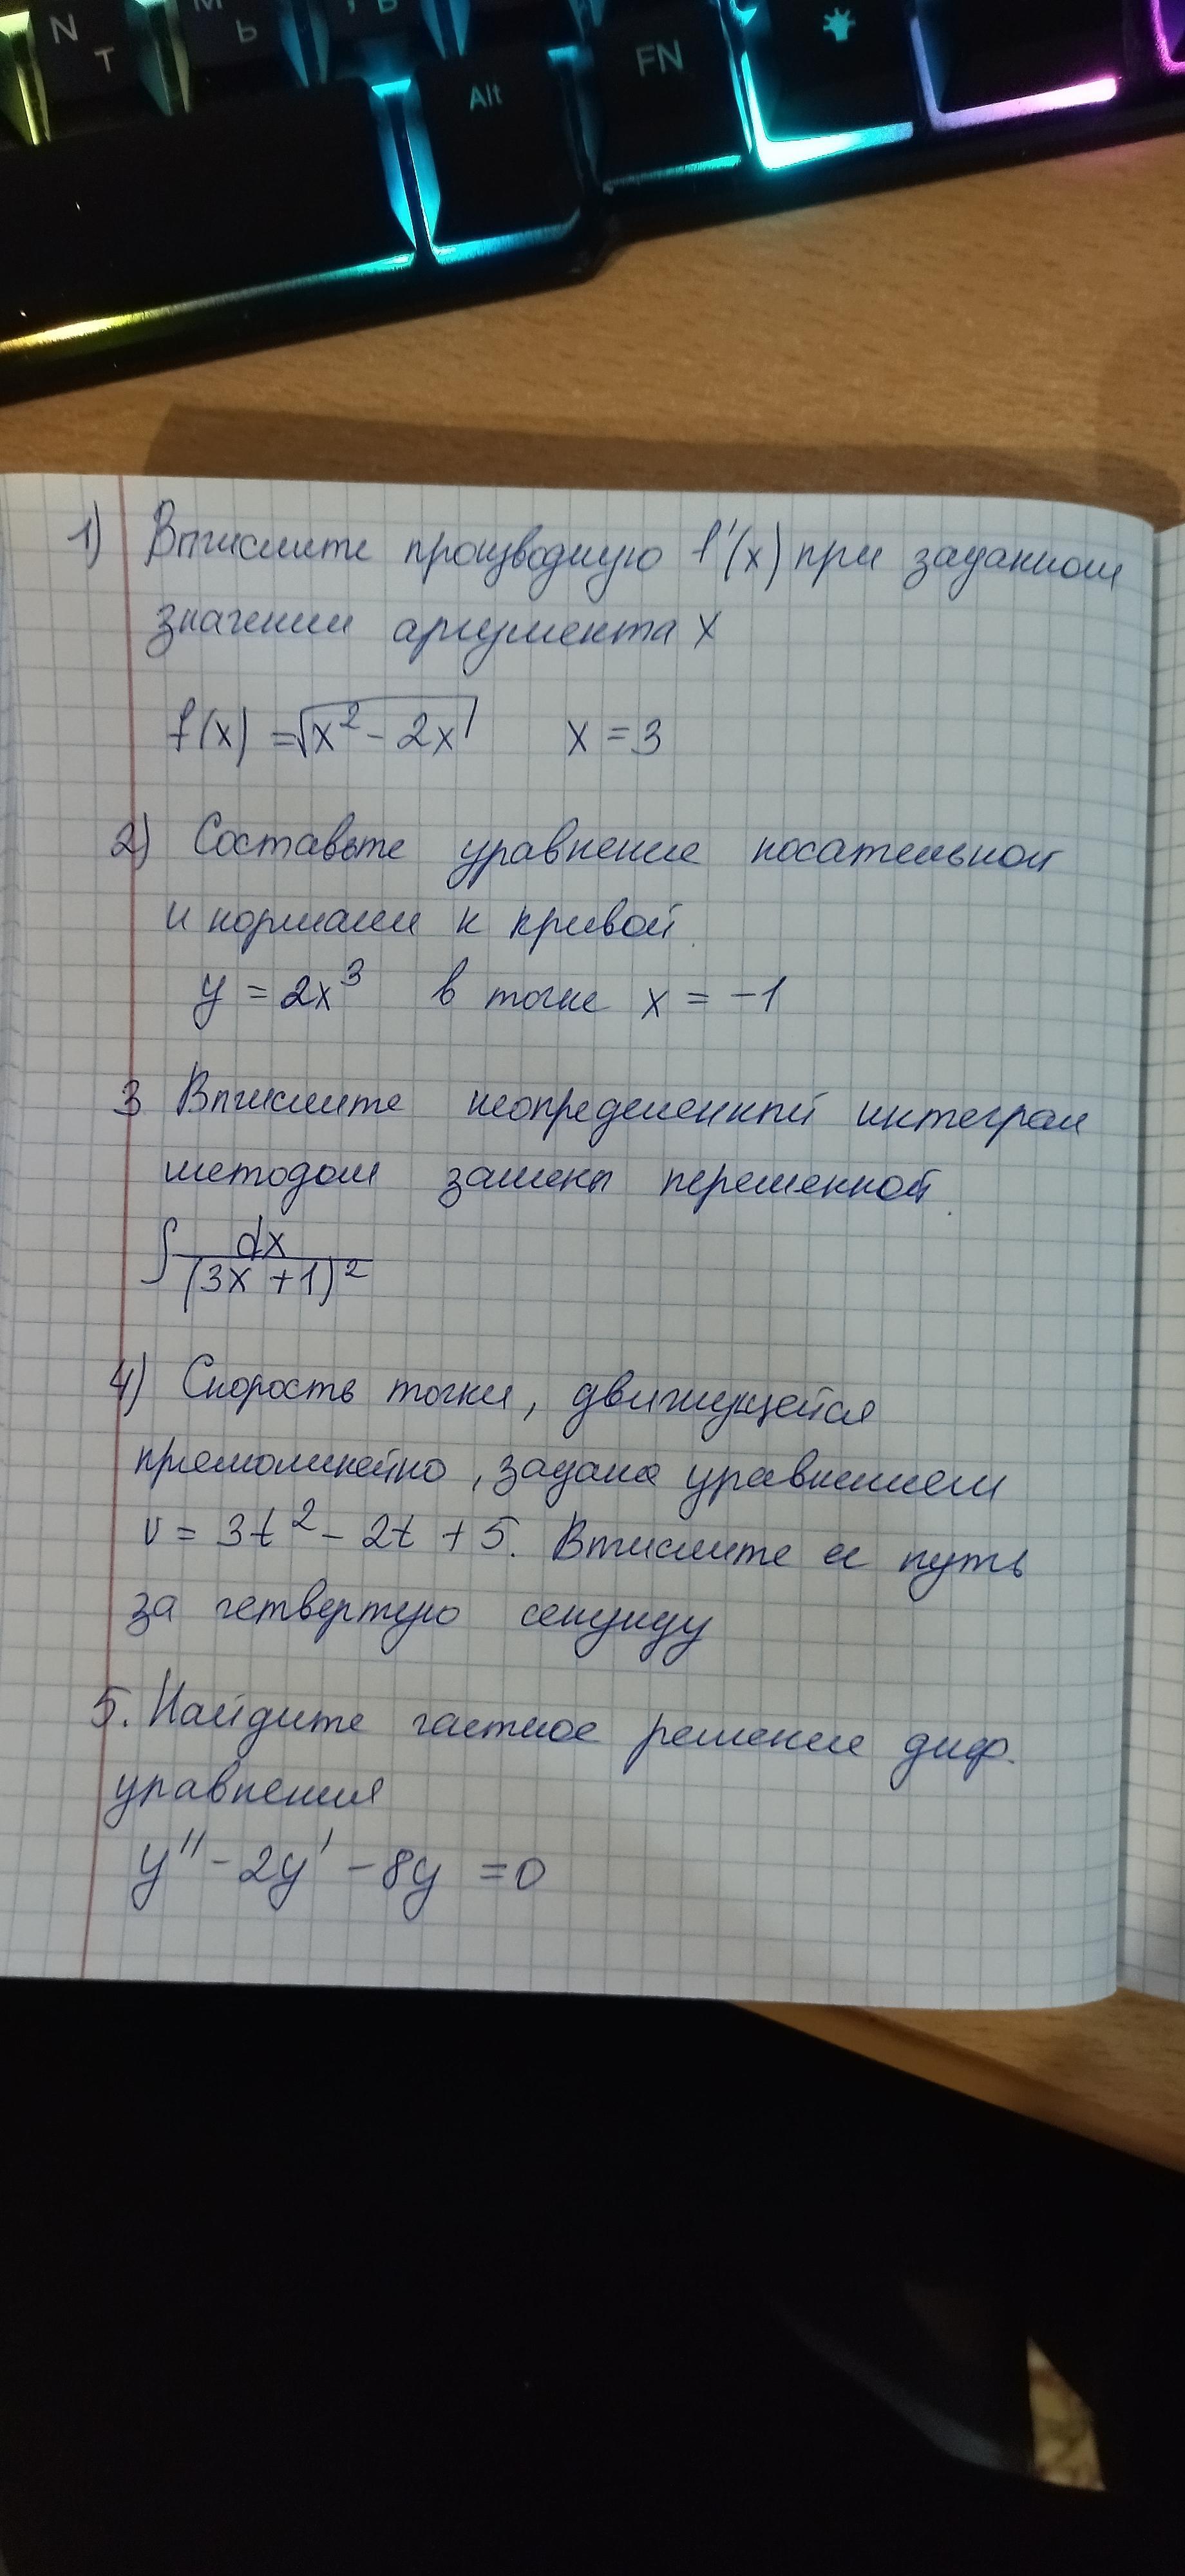 N
T
М
Ь
Alt
FN
1) Вычислите производную f'(x) при заданном
значении аргумента x
f(x) = √(x² - 2x)    x = 3
2) Составьте уравнение косательной
и нормали к кривой.
y = 2x³ в точке x = -1
3 Вычислите неопределенный интеграл
методом замены переменной.
∫ dx / (3x + 1)²
4) Скорость точки, движущейся
прямолинейно, задана уравнением
v = 3t² - 2t + 5. Вычислите ее путь
за четвертую секунду
5. Найдите частное решение диф.
уравнения
y'' - 2y' - 8y = 0